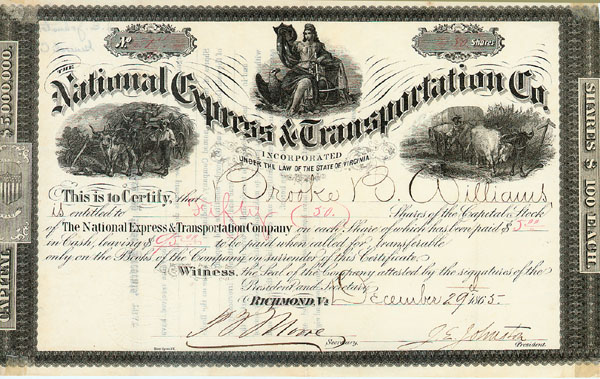 No
50 Shares
THE
National Express & Transportation Co.
INCORPORATED
UNDER THE LAW OF THE STATE OF VIRGINIA
$5,000,000.
CAPITAL
SHARES $100 EACH.
This is to Certify, that Brooke B. Williams
is entitled to Fifty (50) Shares of the Capital Stock
of The National Express & Transportation Company on each Share of which has been paid $5.00
in Cash, leaving $95.00 to be paid when called for Transferable
only on the Books of the Company on surrender of this Certificate.
Witness, the Seal of the Company attested by the signatures of the
President and Secretary
RICHMOND, Va December 29th 1865
Secretary.
J. E. Johnston
President.